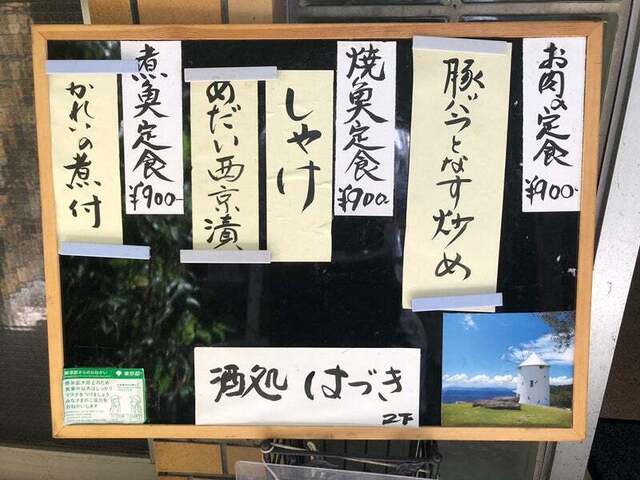 お肉の定食
¥900-
豚バラとなす炒め
焼魚定食
¥900
しゃけ
めだい西京漬
煮魚定食
¥900-
かれいの煮付
酒処 はづき
2F
東京都